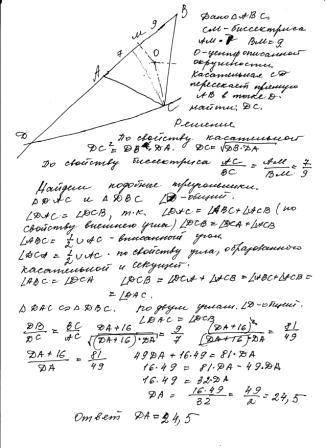 Дано △ABC
CM-биссектриса
AM=7 BM=9
O-центр описанной
окружности
касательная CD
пересекает прямую
AB в точке D.
найти: DC.
B
9
M
7
O
A
C
D
Решение
По свойству касательной
DC²=DB·DA. DC=√DB·DA
По свойству биссектриса AC/BC = AM/BM = 7/9
Найдем подобные треугольники.
△DAC и △DBC ∠D-общий.
∠DAC=∠DCB, т.к. ∠DAC=∠ABC+∠ACB (по
свойству внешнего угла) ∠DCB=∠DCA+∠ACB
∠ABC=1/2 ∪AC-вписанный угол
∠DCA=1/2 ∪AC-по свойству угла, образованного
касательной и секущей.
∠ABC=∠DCA ∠DCB=∠DCA+∠ACB=∠ABC+∠ACB=
=∠DAC.
△DAC∽△DBC. по двум углам. ∠D-общий.
∠DAC=∠DCB
DB/DC = BC/AC DA+16/√(DA+16)·DA = 9/7 (DA+16)²/(DA+16)·DA = 81/49
DA+16/DA = 81/49 49DA+16·49=81·DA
16·49=81·DA-49DA
16·49=32·DA
DA=16·49/32=49/2=24,5
Ответ DA=24,5